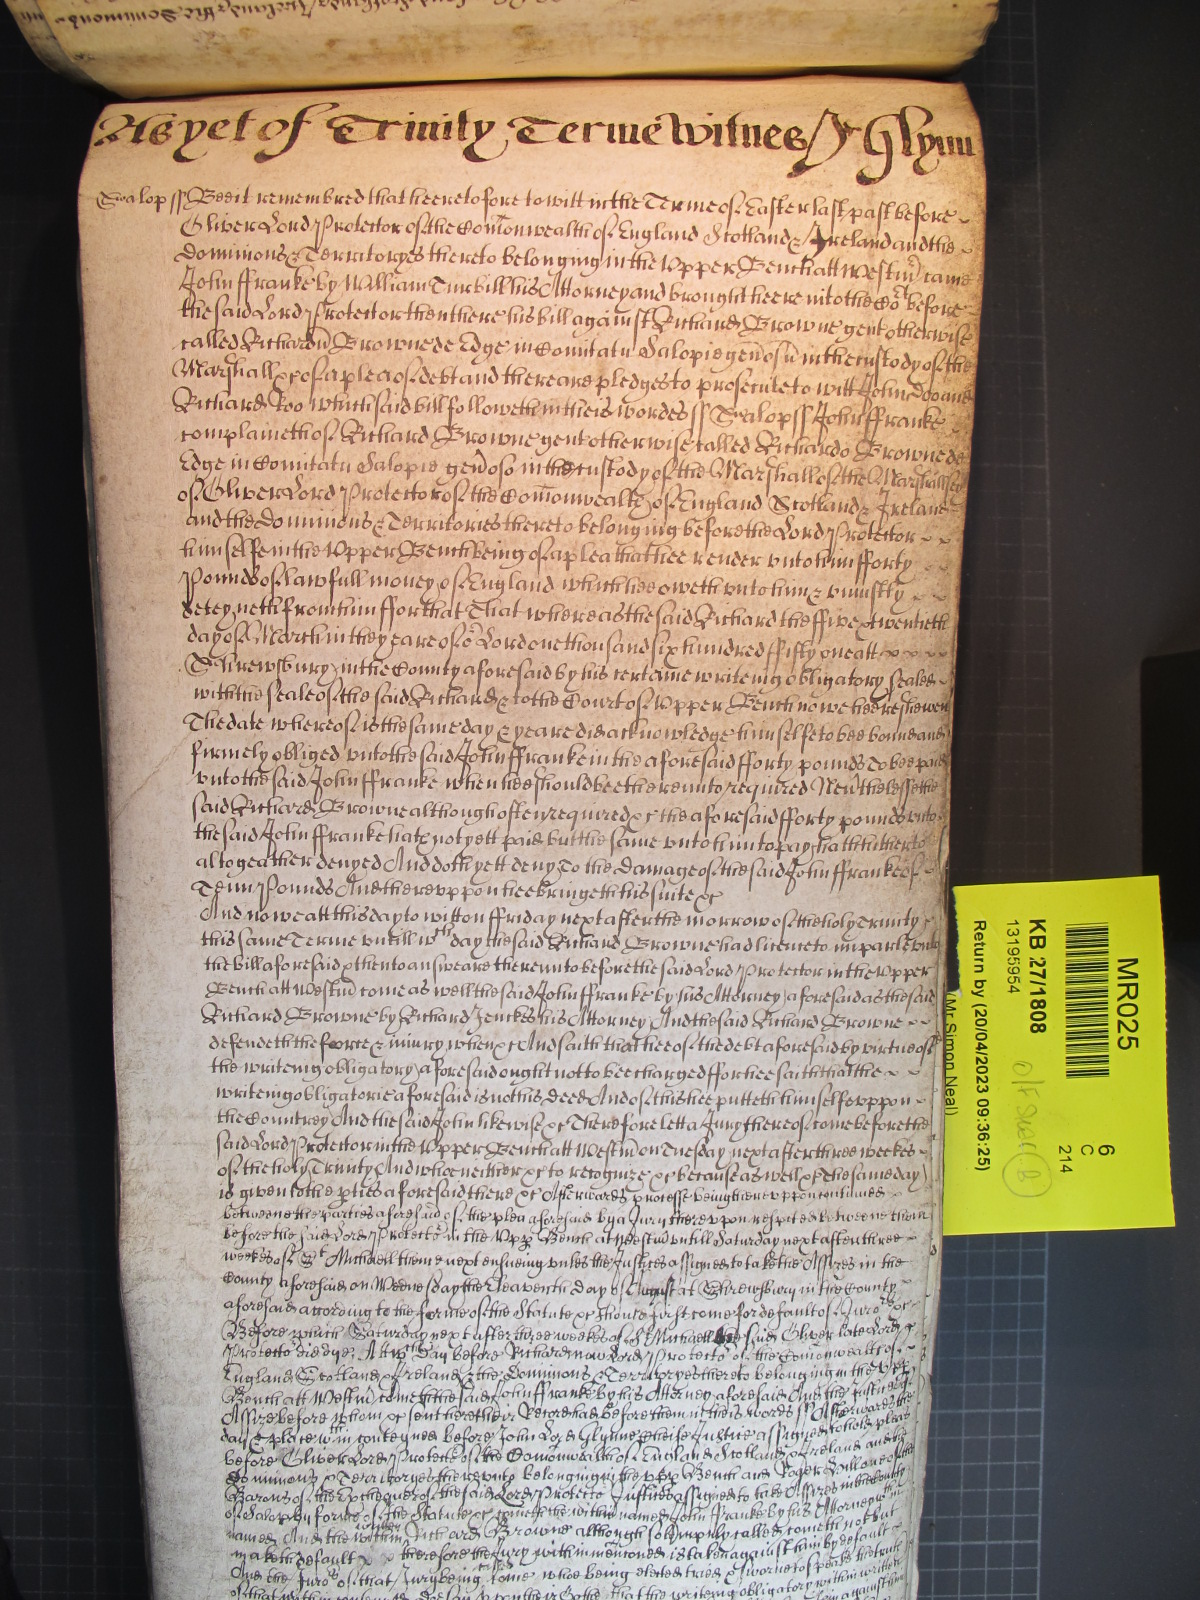 As yet of Trinity Terme Witnes Jo Glynn
Salop ss Bee it remembred that heeretofore to witt in the Terme of Easter last past before
Oliver Lord Protector of the Com̃onwealth of England Scotland & Ireland and the
dominions & Territoryes thereto belonging in the Vpper Bench att Westm̃ came
John ffranke by William Turbill his Attorney and brought heere into the Cot before
the said Lord Protector then there his bill against Richard Browne gent otherwise
called Richardũ Browne de Edge in Comitatu Salopie geñosũ in the custody of the
Marshall &c of a plea of debt and there are pledges to prosecute to witt John Doo and
Richard Roo which said bill followeth in theis wordes ss Salop ss John ffranke
complaineth of Richard Browne gent otherwise called Richardo Browne de
Edge in Comitatu Salopie geñoso in the custody of the Marshall of the Marshalsey
of Oliver Lord Protector of the Com̃onwealth of England Scotland & Ireland
and the Dominions & Territories thereto belonging before the Lord Protector
himselfe in the Vpper Bench being of a plea that hee render vnto him fforty
Pounds of lawfull money of England which hee oweth vnto him & vniustly
deteyneth from him ffor that That whereas the said Richard the ffive & twentieth
day of March in the yeare of or Lord one thousand six hundred ffifty one att
Shrewsbury in the County aforesaid by his certeine writeing obligatory sealed
with the seale of the said Richard & to the Court of Vpper Bench nowe heere shewen
The date whereof is the same day & yeare did acknowledge himselfe to bee bound and
firmely obliged vnto the said John ffranke in the aforesaid fforty pounds To bee paid
vnto the said John ffranke when hee should bee therevnto required Nev̄theless the
said Richard Browne although often required &c the aforesaid fforty pounds vnto
the said John ffranke hath not yett paid but the same vnto him to pay hath hitherto
altogeather denyed And doth yett deny To the damage of the said John ffranke of
Tenn Pounds And therevppon hee bringeth his suite &c
And nowe att this day to witt on ffriday next after the morrow of the holy Trinity
this same Terme vntill wch day the said Richard Browne had licence to imparle vnto
the bill aforesaid & then to answeare therevnto before the said Lord Protector in the Vpper
Bench att Westm̃ come as well the said John ffranke by his Attorney aforesaid as the said
Richard Browne by Richard Jenckes his Attorney And the said Richard Browne
defendeth the force & iniury when &c And saith that hee of the debt aforesaid by virtue of
the writeing obligatory aforesaid ought not to bee charged ffor hee saith that the
writeing obligatorie aforesaid is not his deed And of this hee putteth himselfe vppon
the Countrey And the said John likewise &c Therefore lett a Jury thereof come before the
said Lord Protector in the Vpper Bench att Westm̃ on Tuesday next after three weekes
of the holy Trinity And who neither &c to recognize &c because as well &c The same day
is given to the pties aforesaid there &c Afterwards processe being therevppon continued
betweene the parties aforesaid of the plea aforesaid by a Jury therevpon respited betweene them
before the said Lord Protector in the Vpp Bench at Westm̃ vntill Saturday next after three
weekes of St Michaell then next ensueing vnles the Justices assigned to take the Assizes in the
County aforesaid on Wednesday the Eleaventh day of August at Shrewsbury in the County
aforesaid according to the forme of the Statute &c should first come for default of Jurors &c
Before which Saturday next after three weekes of St Michaell the said Oliver late Lord
Protector died &c Att wch day before Richard now Lord Protector of the Com̃onwealth of
England Scotland & Ireland & the Dominions & Terrytoryes thereto belonging in the Vpp
Bench att Westm̃ cometh the said John ffranke by his Attorney aforesaid And the Justices of
Assize before whom &c sent here their Record had before them in theis words ss Afterwards the
day & place wthin conteyned before John Lord Glynne Cheife Justice assigned to hold pleas
before Oliver Lord Protector of the Com̃onwealth of England Scotland & Ireland and the
Dominions & Territoryes therevnto belonging in the vpp Bench and Roger Hill one of the
Barons of the Exchequer of the said Lord Protector Justices assigned to take Assizes in the County
of Salop by forme of the Statute &c cometh the within named John ffranke by his Attorney within
named And the within Richard Browne although solempnly called cometh not but
maketh default &c therefore the Jury within menc̃oned is taken against him by default
And the Jurors of that Jury being come who being elected tried & sworne to speake the truth
that the writeing obligatory within written
MR025
6
C
214
KB 27/1808
13195954
Return by (20/04/2023 09:36:25)
(Mr Simon Neal)